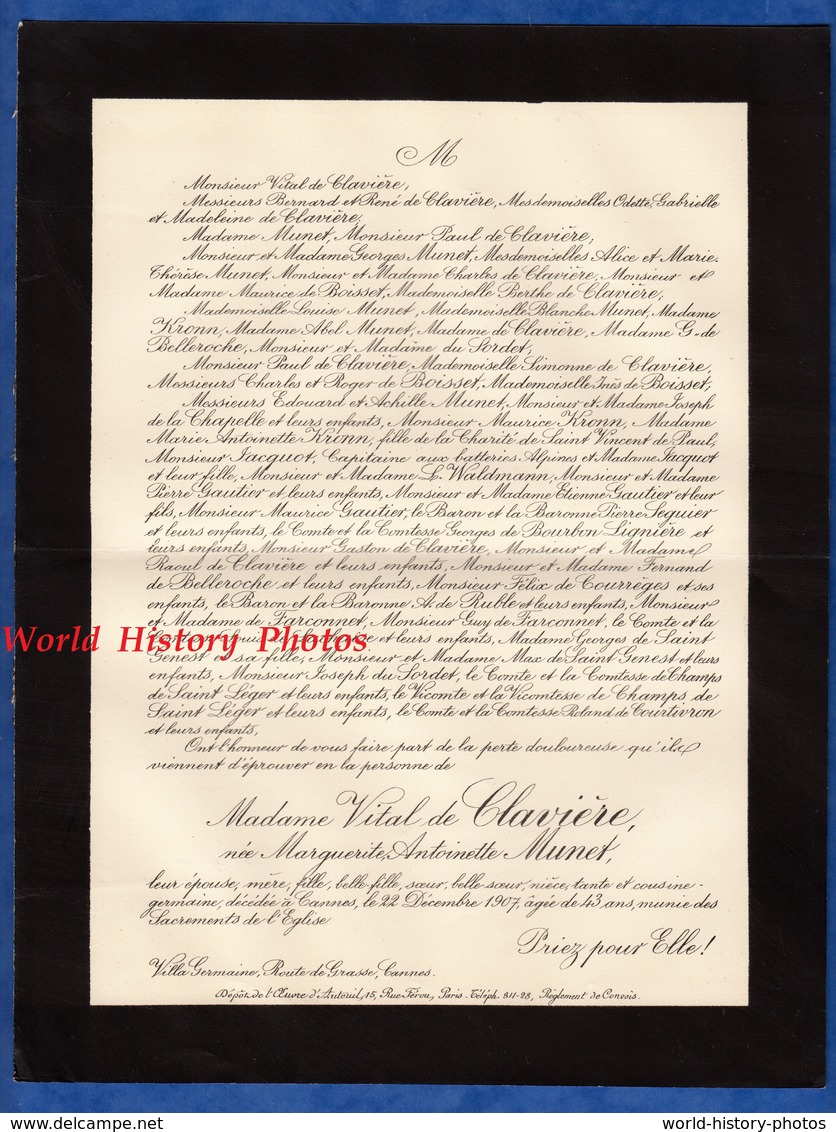 M
Monsieur Vital de Clavière,
Messieurs Bernard et René de Clavière, Mesdemoiselles Odette, Gabrielle
et Madeleine de Clavière,
Madame Munet, Monsieur Paul de Clavière,
Monsieur et Madame Georges Munet, Mesdemoiselles Alice et Marie-
Thérèse Munet, Monsieur et Madame Charles de Clavière, Monsieur et
Madame Maurice de Boisset, Mademoiselle Berthe de Clavière,
Mademoiselle Louise Munet, Mademoiselle Blanche Munet, Madame
Kronn, Madame Abel Munet, Madame de Clavière, Madame G. de
Belleroche, Monsieur et Madame du Sordet,
Monsieur Paul de Clavière, Mademoiselle Simonne de Clavière,
Messieurs Charles et Roger de Boisset, Mademoiselle Inès de Boisset,
Messieurs Edouard et Achille Munet, Monsieur et Madame Joseph
de la Chapelle et leurs enfants, Monsieur Maurice Kronn, Madame
Marie Antoinette Kronn, fille de la Charité de Saint Vincent de Paul,
Monsieur Jacquot, Capitaine aux batteries Alpines et Madame Jacquot
et leur fille, Monsieur et Madame L. Waldmann, Monsieur et Madame
Pierre Gautier et leurs enfants, Monsieur et Madame Etienne Gautier et leur
fils, Monsieur Maurice Gautier, le Baron et la Baronne Pierre Seguier
et leurs enfants, le Comte et la Comtesse Georges de Bourbon Lignière et
leurs enfants, Monsieur Gaston de Clavière, Monsieur et Madame
Raoul de Clavière et leurs enfants, Monsieur et Madame Fernand
de Belleroche et leurs enfants, Monsieur Félix de Courrèges et ses
enfants, le Baron et la Baronne A. de Ruble et leurs enfants, Monsieur
et Madame de Farconnet, Monsieur Guy de Farconnet, le Comte et la
et leurs enfants, Madame Georges de Saint
Genest et sa fille, Monsieur et Madame Max de Saint Genest et leurs
enfants, Monsieur Joseph du Sordet, le Comte et la Comtesse de Champs
de Saint Léger et leurs enfants, le Vicomte et la Vicomtesse de Champs de
Saint Léger et leurs enfants, le Comte et la Comtesse Roland de Courtivron
et leurs enfants,
Ont l'honneur de vous faire part de la perte douloureuse qu'ils
viennent d'éprouver en la personne de
Madame Vital de Clavière,
née Marguerite, Antoinette Munet,
leur épouse, mère, fille, belle-fille, sœur, belle-sœur, nièce, tante et cousine-
germaine, décédée à Cannes, le 22 Décembre 1907, âgée de 43 ans, munie des
Sacrements de l'Eglise
Priez pour Elle!
Villa Germaine, Route de Grasse, Cannes.
Dépôt de l'Œuvre d'Auteuil, 15, Rue Férou, Paris. Téléph. 811-28, Règlement de Convois.
World History Photos
www.delcampe.net
world-history-photos